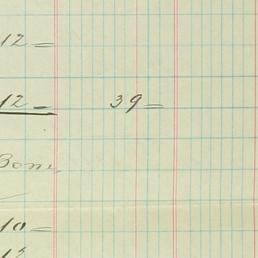 12 =
12 = 39 =
Bom
10 =
12